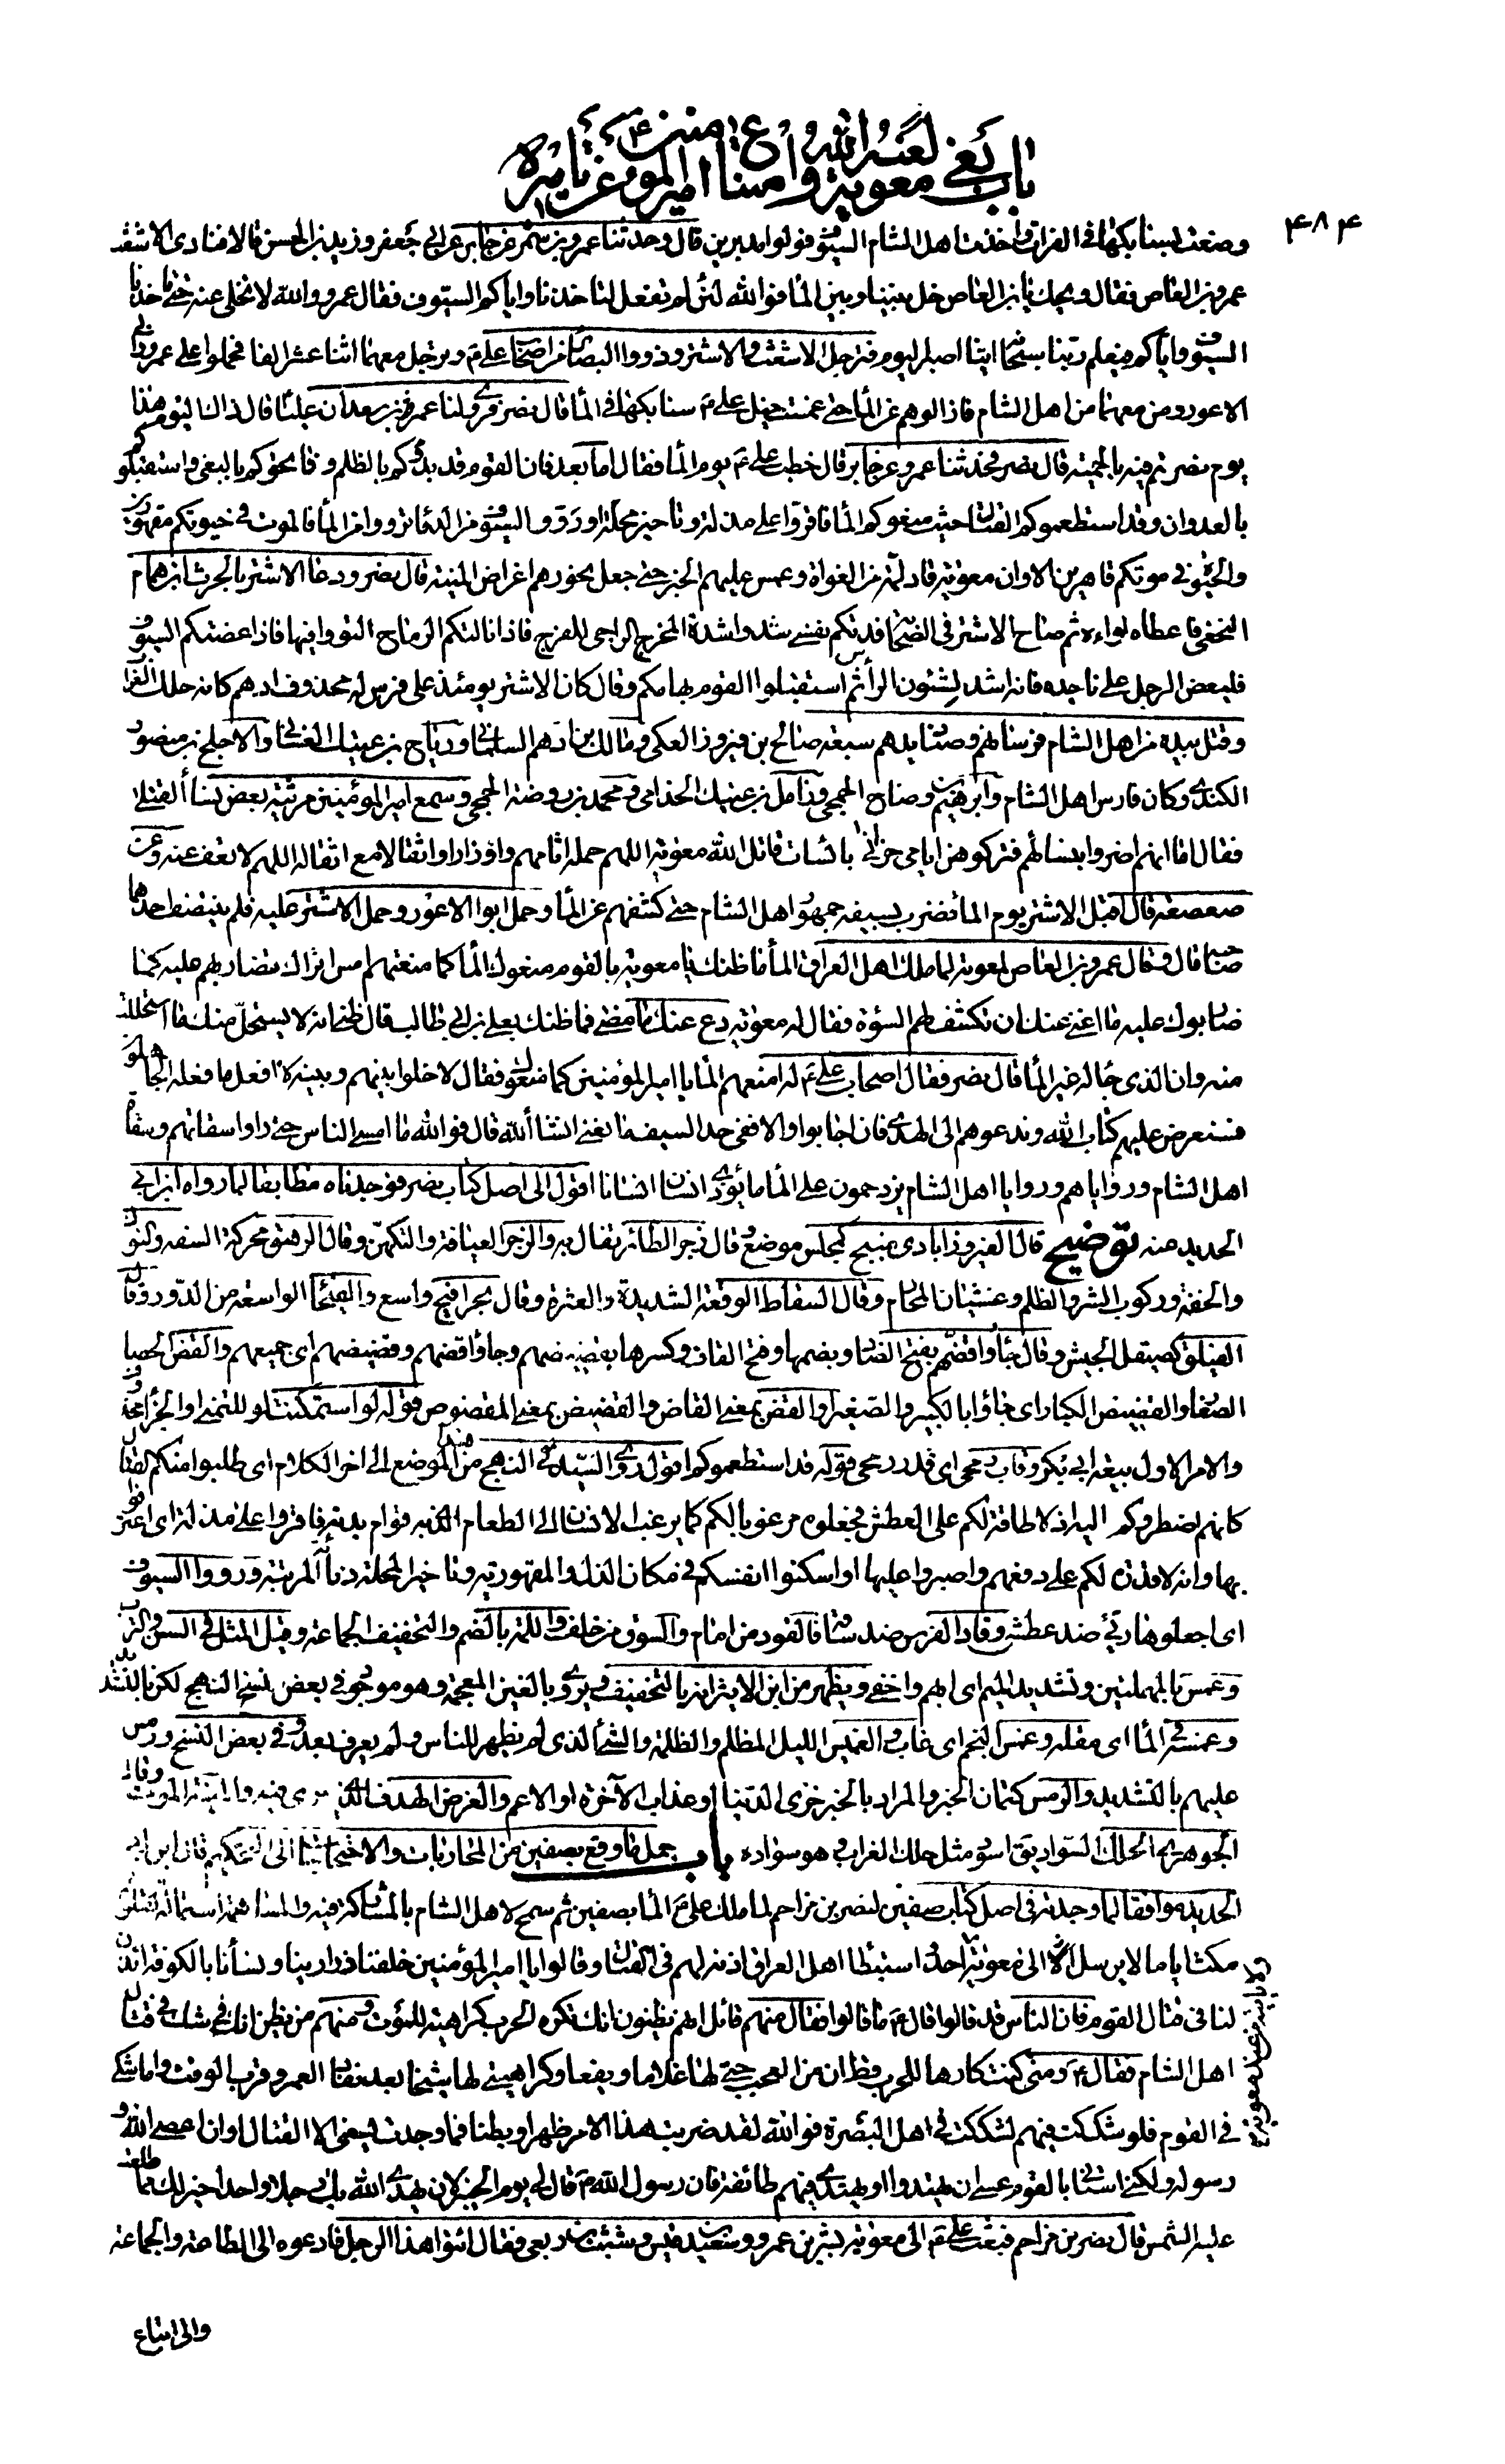 باب بغي معوية لعنه الله وامتناع امير المؤمنين ع عن تأميره
۴۸۴
وصنعت لسنابكها في الفرات واخذت اهل الشام السيوف فولوا مدبرين قال وحدثنا عمرو بن شمر عن جابر عن ابي جعفر وزيد بن الحسن قالا فنادى الاشعث
عمرو بن العاص فقال ويحك يا بن العاص خل بيننا وبين الماء فوالله لئن لم تفعل لتاخذنا واياكم السيوف فقال عمرو والله لا نخلي عنه حتى تاخذنا
السيوف واياكم فيعلم ربنا سبحانه اينا اصبر اليوم فترجل الاشعث والاشتر وذووا البصائر من اصحاب علي ع وترجل معهما اثنا عشر الفا فحملوا على عمرو وابي
الاعور ومن معهما من اهل الشام فازالوهم عن الماء حتى غمست خيل علي ع سنابكها في الماء قال نصر فروى لنا عمر بن سعد ان عليا قال ذلك اليوم هذا
يوم نصرتم فيه بالحمية قال نصر فحدثنا عمرو عن جابر قال خطب علي ع يوم الماء فقال اما بعد فان القوم قد بدؤكم بالظلم وفاتحوكم بالبغي واستقبلوكم
بالعدوان وقد استطعموكم القتال حيث منعوكم الماء فاقروا على مذلة وتاخير محلة او رووا السيوف من الدماء ترووا من الماء فالموت في حيوتكم مقهورين
والحيوة في موتكم قاهرين الا وان معوية قاد لمة من الغواة وعمس عليهم الخبر حتى جعل نحورهم اغراض المنية قال نصر ودعا الاشتر بالحرث بن همام
النخعي فاعطاه لواءه ثم صاح الاشتر في اصحابه فدتكم نفسي شدوا شدة المحرج الراجي للفرج فاذا نالتكم الرماح التووا فيها فاذا عضتكم السيوف
فليعض الرجل على ناجده فانه اشد لشئون الرأس ثم استقبلوا القوم بهامكم وقال كان الاشتر يومئذ على فرس له محذوف ادهم كانه حلك الغراب
وقتل بيده من اهل الشام من فرسانهم وصناديدهم سبعة صالح بن فيروز العكي ومالك بن ادهم السلماني ورياح بن عتيك الغساني والاجلح بن منصور
الكندي وكان فارس اهل الشام وابرهيم بن وضاح الجمحي وزامل بن عتيك الحذامي ومحمد بن روضة الجمحي وسمع امير المؤمنين مرثية بعض نساء القتلى
فقال اما انهم اضروا بنسائهم فتركوهن ايامى حزانى بائسات قاتل الله معوية اللهم حمله اثامهم واوزارا واثقالا مع اثقاله اللهم لا تعف عنه وعن
صعصعة قال اقبل الاشتر يوم الماء فضرب بسيفه جمهور اهل الشام حتى كشفهم عن الماء وحمل ابوا الاعور وحمل الاشتر عليه فلم ينتصف احدهما
صاحبه قال وقال عمرو بن العاص لمعوية لما ملك اهل العراق الماء ما ظنك يا معوية بالقوم ان منعوك الماء كما منعتهم امس اتراك تضاربهم عليه كما
ضاربوك عليه ما اغنى عنك ان تكشف لهم السوءة فقال له معوية دع عنك ما مضى فما ظنك بعلي بن ابي طالب قال ظني انه لا يستحل منك ما استحللت
منه وان الذي جاء له غير الماء قال نصر فقال اصحاب علي ع له امنعهم الماء يا امير المؤمنين كما منعوك فقال لا خلوا بينهم وبينه لا افعل ما فعله الجاهلون
فسنعرض عليهم كتاب الله وندعوهم الى الهدى فان اجابوا والا ففي حد السيف ما يغني انشاء الله قال فوالله ما امسى الناس حتى راوا سقاتهم وسقاة
اهل الشام ورواياهم وروايا اهل الشام يزدحمون على الماء ما يؤذي انسان انسانا اقول الى اصل كتاب نصر فوجدناه مطابقا لما رواه ابن ابي
الحديد عنه توضيح قال الفيروزابادي منبج كمجلس موضع وقال زجر الطائر تفأل به والزجر العيافة والتكهن وقال الرهق محركة السفه والنوك
والخفة وركوب الشر والظلم وغشيان المحارم وقال السقاط الوقعة الشديدة والعثرة وقال بحر افيح واسع والفيحاء الواسعة من الدور وقال
الفيلق كصيقل الجيش وقال جاؤا قضهم بفتح الضاد وبضمها وفتح القاف وكسرها بقضيضهم وجاؤا قضهم وقضيضهم اي جميعهم والقض الحصا
الصغار والقضيض الكبار اي جاؤا بالكبير والصغير او القض بمعنى القاض والقضيض بمعنى المقضوض قوله لو استمكنت لو للتمني او الجزاء محذوف
والامر الاول بيعة ابي بكر وقاب رمحي اي قدر رمحي قوله قد استطعموكم اقول روى السيد في النهج من هذا الموضع الى اخر الكلام اي طلبوا منكم القتال
كانهم يضطروكم اليه اذ لا طاقة لكم على العطش فجعلوه مرغوبا لكم كما يرغب الانسان الى الطعام الذي به قوام بدنه فاقروا على مذلة اي اعترفوا
بها وانه لا قدرة لكم على دفعهم واصبروا عليها او اسكنوا انفسكم في مكان الذل والمقهورية وتاخير المحلة دناءة المرتبة ورووا السيوف
اي اجعلوها ريى ضد عطشى وقاد الفرس ضد ساق فالقود من امام والسوق من خلف واللمة بالضم والتخفيف الجماعة وقيل المثل في السن والترب
وعمس بالمهملتين وتشديد الميم اي ابهم واخفى ويظهر من ابن الاثير انه بالتخفيف ويروى بالغين المعجمة وهو موجود في بعض نسخ النهج لكن بالتشديد
وغمسه في الماء اي مقله وغمس النجم اي غاب والغميس الليل المظلم والظلمة والشئ الذي لم يظهر للناس ولم يعرف بعد وفي بعض النسخ ورمس
عليهم بالتشديد والرمس كتمان الخبر والمراد بالخبر خزي الدنيا او عذاب الاخرة او الاعم والغرض الهدف الذي يرمى فيه والمنية الموت وقال
الجوهري الحلك السواد يق اسود مثل حلك الغراب وهو سواده باب جمل ما وقع بصفين من المحاربات والاحتجاجات الى التحكيم قال ابن ابي
الحديد موافقا لما وجدته في اصل كتاب صفين لنصر بن مزاحم لما ملك علي ع الماء بصفين ثم سمح لاهل الشام بالمشاركة فيه والمساهمة استمالة لقلوبهم
مكث اياما لا يرسل الى معوية احدا ولا ياتيه من عند معوية احد استبطأ اهل العراق اذنه لهم في القتال وقالوا يا امير المؤمنين خلفنا ذرارينا ونساءنا بالكوفة ائذن
لنا في قتال القوم فان الناس قد قالوا قال ع ما قالوا فقال منهم قائل انهم يظنون انك تكره الحرب كراهية للموت ومنهم من يظن انك في شك في قتال
اهل الشام فقال ع ومتى كنت كارها للحرب قط ان من العجب حبي لها غلاما ويفعا وكراهيتي لها شيخا بعد نفاد العمر وقرب الوقت واما شكي
في القوم فلو شككت فيهم لشككت في اهل البصرة فوالله لقد ضربت هذا الامر ظهرا وبطنا فما وجدت يسعني الا القتال او ان اعصي الله و
رسوله ولكني استاني بالقوم عسى ان يهتدوا او يهتدي فيهم طائفة فان رسول الله ص قال لي يوم الخيبر لان يهدي الله بك رجلا واحدا خير لك مما طلعت
عليه الشمس قال نصر بن مزاحم فبعث علي ع الى معوية بشير بن عمرو وسعيد بن قيس وشبث بن ربعي فقال ائتوا هذا الرجل فادعوه الى الطاعة والجماعة
والى اتباع